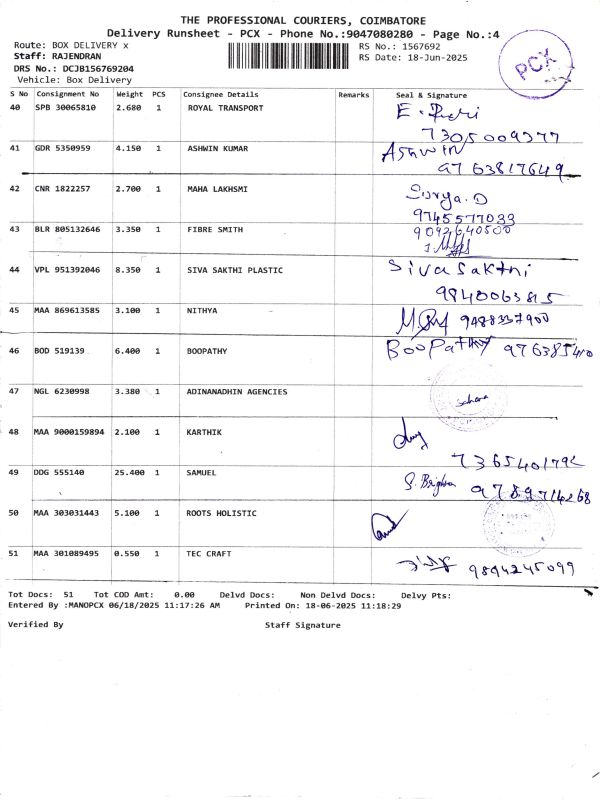 THE PROFESSIONAL COURIERS, COIMBATORE
Delivery Runsheet - PCX - Phone No.:9047080280 - Page No.:4
Route: BOX DELIVERY x RS No.: 1567692
Staff: RAJENDRAN RS Date: 18-Jun-2025
DRS No.: DCJB156769204
Vehicle: Box Delivery
PCX
S No Consignment No Weight PCS Consignee Details Remarks Seal & Signature
40 SPB 30065810 2.680 1 ROYAL TRANSPORT
7305009377
41 GDR 5350959 4.150 1 ASHWIN KUMAR AShwIN
9763817649
42 CNR 1822257 2.700 1 MAHA LAKHSMI Surya.D
9745577033
43 BLR 805132646 3.350 1 FIBRE SMITH 9092640500
44 VPL 951392046 8.350 1 SIVA SAKTHI PLASTIC Siva Sakthi
9840063815
45 MAA 869613585 3.100 1 NITHYA 9488337900
46 BOD 519139 6.400 1 BOOPATHY BooPathy 976385410
47 NGL 6230998 3.380 1 ADINANADHIN AGENCIES
48 MAA 9000159894 2.100 1 KARTHIK
736540179L
49 DDG 555140 25.400 1 SAMUEL S. Brighton
9789714268
50 MAA 303031443 5.100 1 ROOTS HOLISTIC
51 MAA 301089495 0.550 1 TEC CRAFT 9894245099
Tot Docs: 51 Tot COD Amt: 0.00 Delvd Docs: Non Delvd Docs: Delvy Pts:
Entered By :MANOPCX 06/18/2025 11:17:26 AM Printed On: 18-06-2025 11:18:29
Verified By Staff Signature